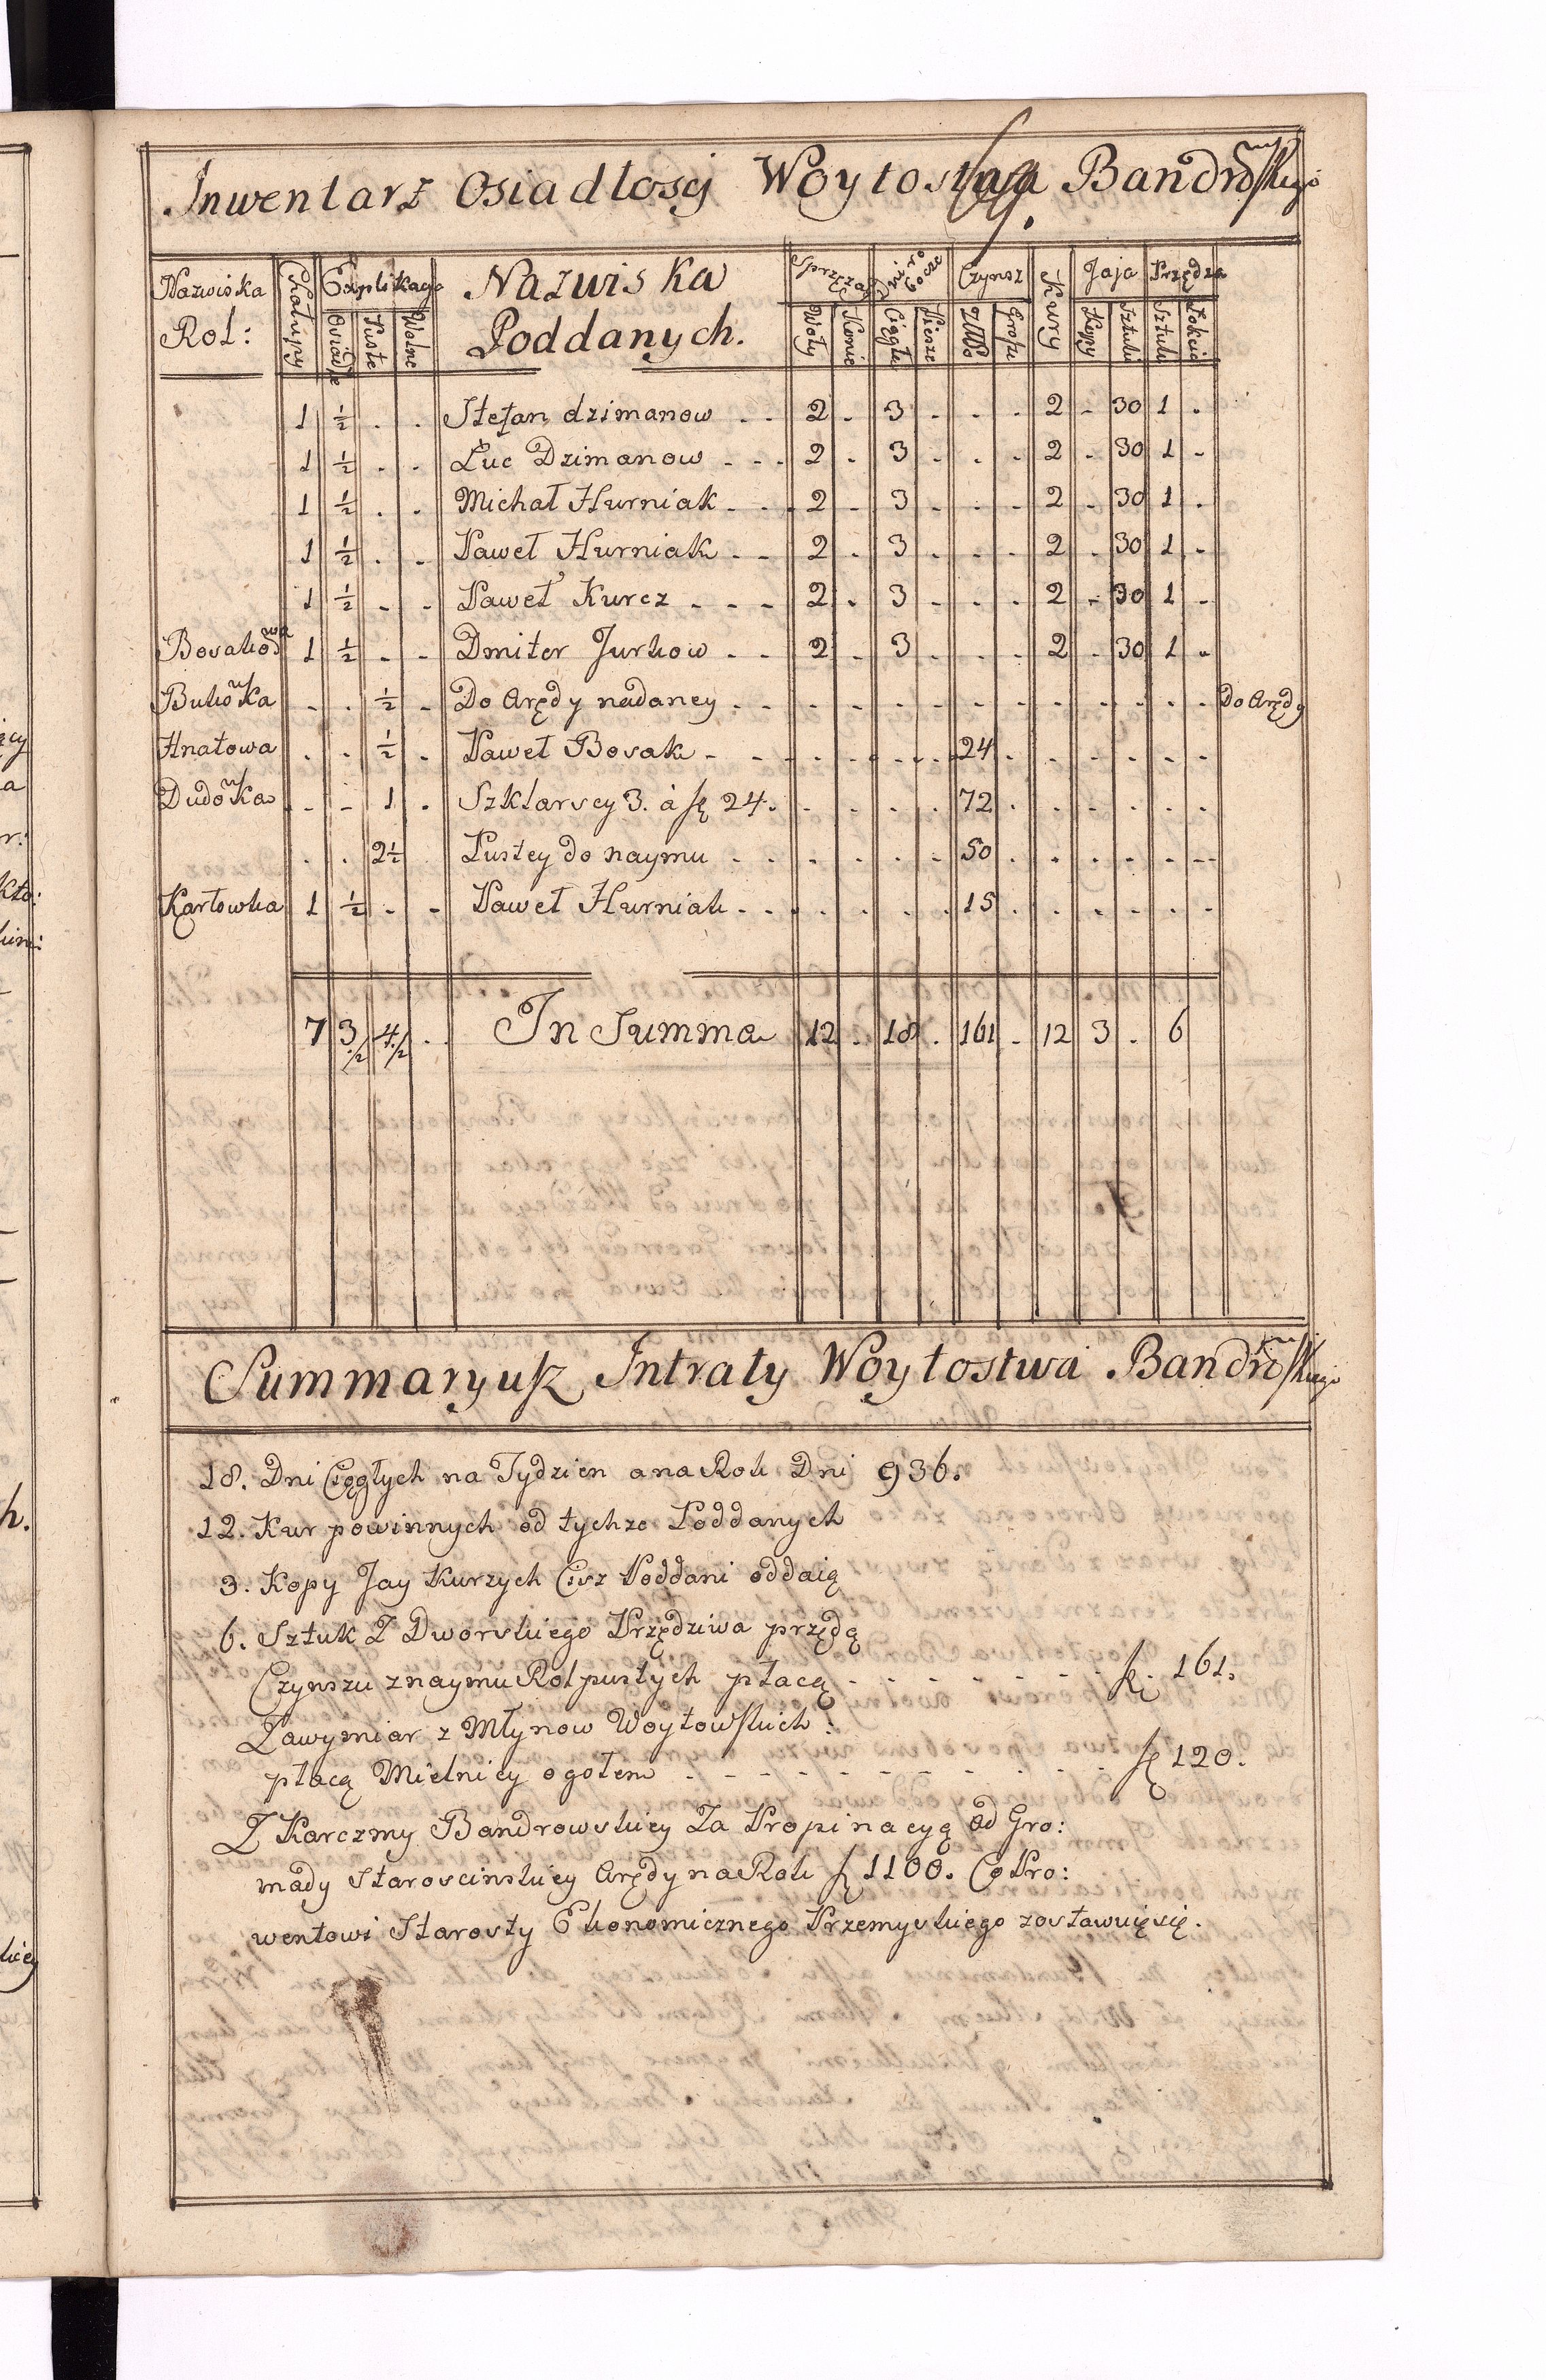 Inwentarz Osiadłoscj Woytostwa Bandrowskiego
Nazwiska Rol: Chałupy Explikacya Nazwiska Poddanych. Sprzęzay Dni robocze Czynsz Kury Jaja Przędza
Osiadłe Puste Wolne Woły Konie Ciągłe Piesze Złł Grosze Kopy Sztuki Sztuki Łokcie
1 ½ . . Stefan dzimanow . . 2 . 3 . . . 2 - 30 1 .
1 ½ . . Łuc Dzimanow . . . 2 . 3 . . . 2 - 30 1 -
1 ½ . . Michał Hurniak . . . 2 . 3 . . . 2 - 30 1 .
1 ½ . . Paweł Hurniak . . 2 . 3 . . . 2 . 30 1 .
1 ½ . . Paweł Kurcz . . . 2 . 3 . . . 2 - 30 1 .
Bosakowa 1 ½ . . Dmiter Jurkow . . 2 . 3 . . . 2 . 30 1 .
Bukowka . . ½ . Do Arędy nadaney . . . . . . . . . . . . . Do Arędy
Hnatowa . . ½ . Paweł Bosak . . . . . . . 24 . . . . . .
Dudowka . - 1 . Szklarscy 3. à fl 24. . . . . 72 . . . . . .
. . 2½ Pustey do naymu . . . . . . 50 . . . . . .
Karłowka 1 ½ . . Paweł Hurniak . . . . . . 15 . . . . . .
7 3½ 4½ . In Summa 12 . 18 . 161 . 12 3 . 6
Summaryusz Intraty Woytostwa Bandrowskiego
18. Dni Ciągłych na Tydzien a na Rok Dni 936.
12. Kur powinnych od tychze Poddanych
3. Kopy Jay Kurzych Cisz Poddani oddaią
6. Sztuk Z Dworskiego Przędziwa przędą
Czynszu z naymu Rol pustych płacą . - - - - - - . fl. 161.
Zawymiar z Młynow Woytowskich:
płacą Mielnicy ogołem . - - - - - - - . . . . fl 120.
Z Karczmy Bandrowskiey Za Propinacyą od Gro:
mady Staroscinskiey Arędy na Rok fl 1100. Co Pro:
wentowi Starosty Ekonomicznego Przemyskiego zostawuię się.